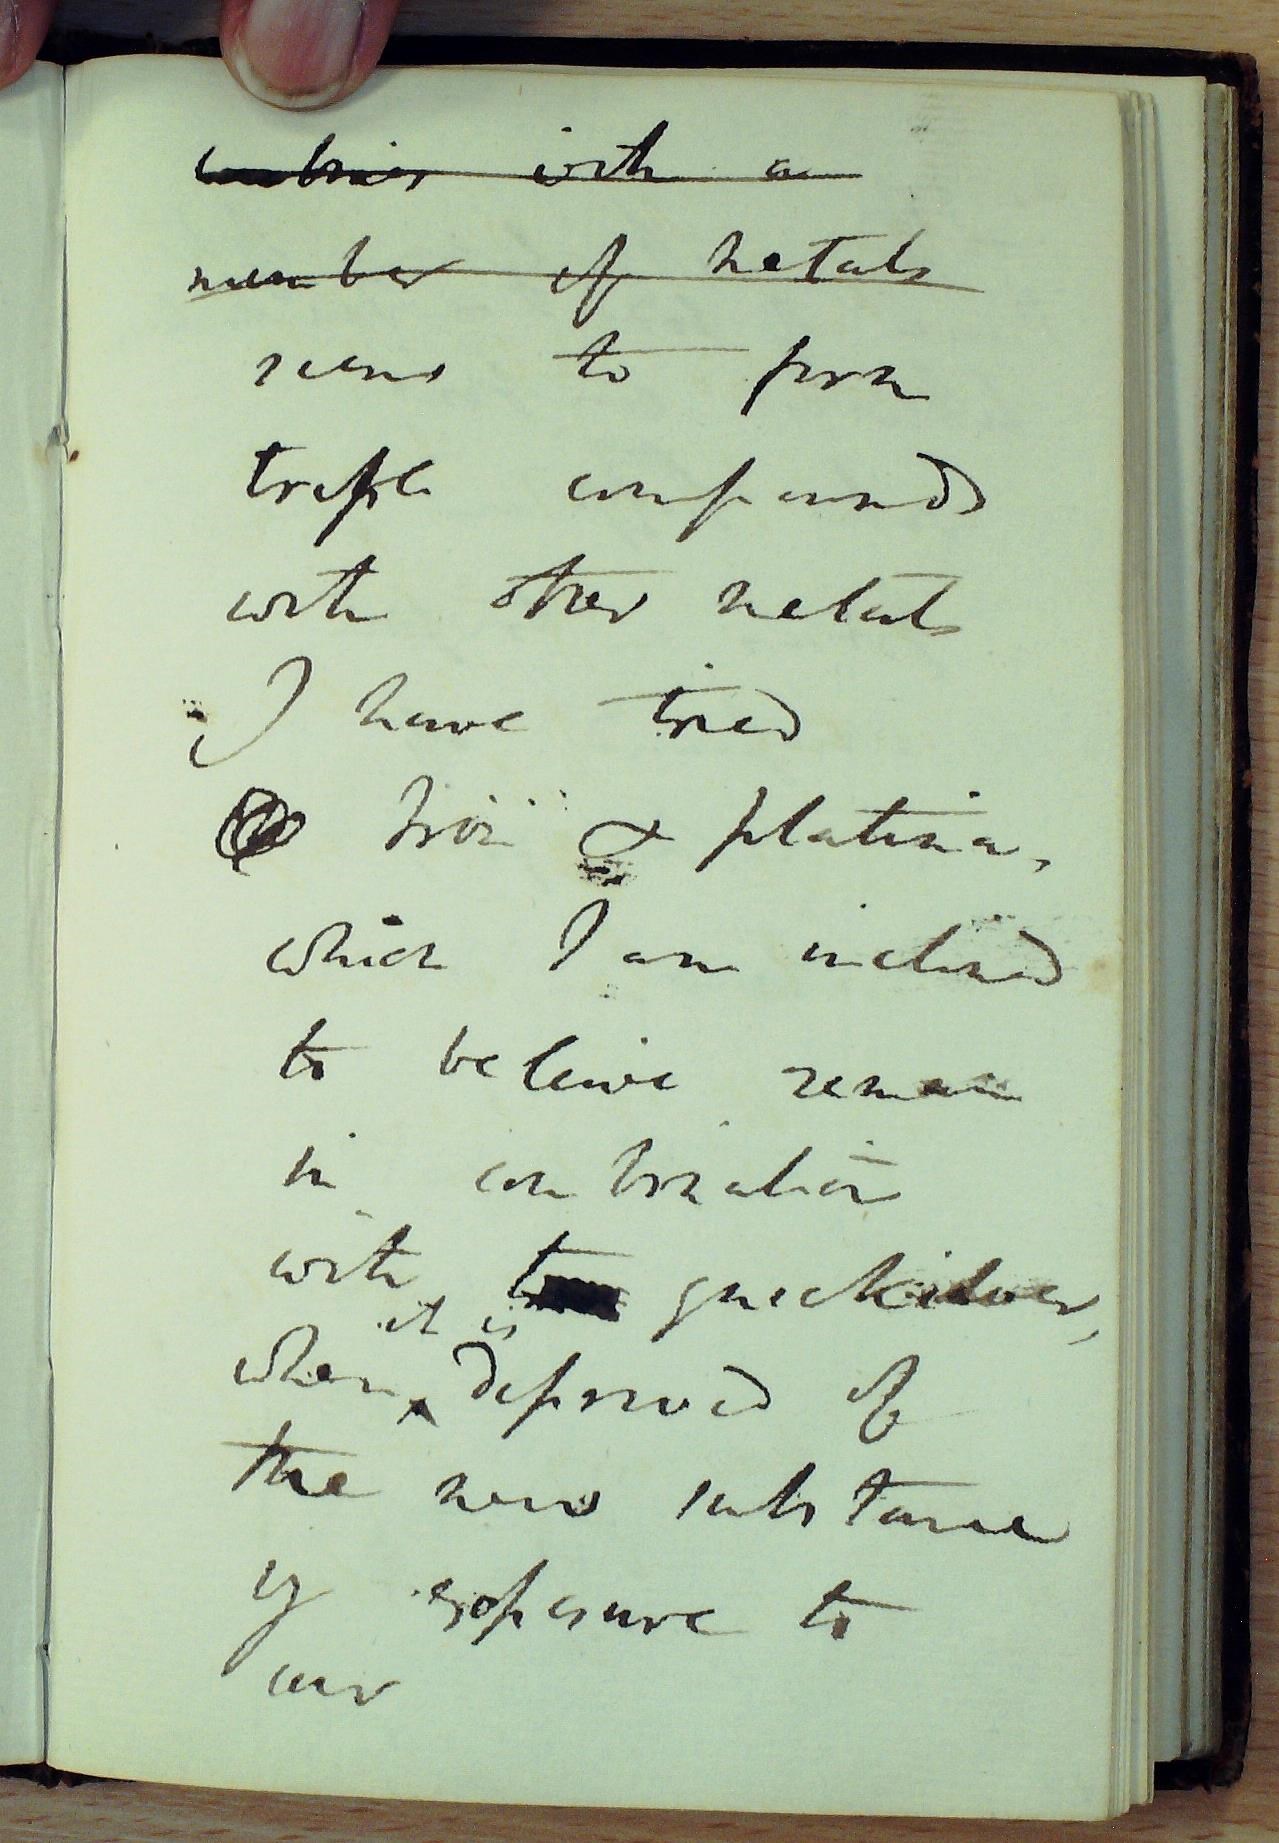 combines with a
number of metals
seems to form
triple compounds
with other metals
I have tried
Iron & platina,
which I am inclined
to beleive remain
in combination
with quicksilver,
it is
when ^ deprived of
the new substance
by exposure to
air